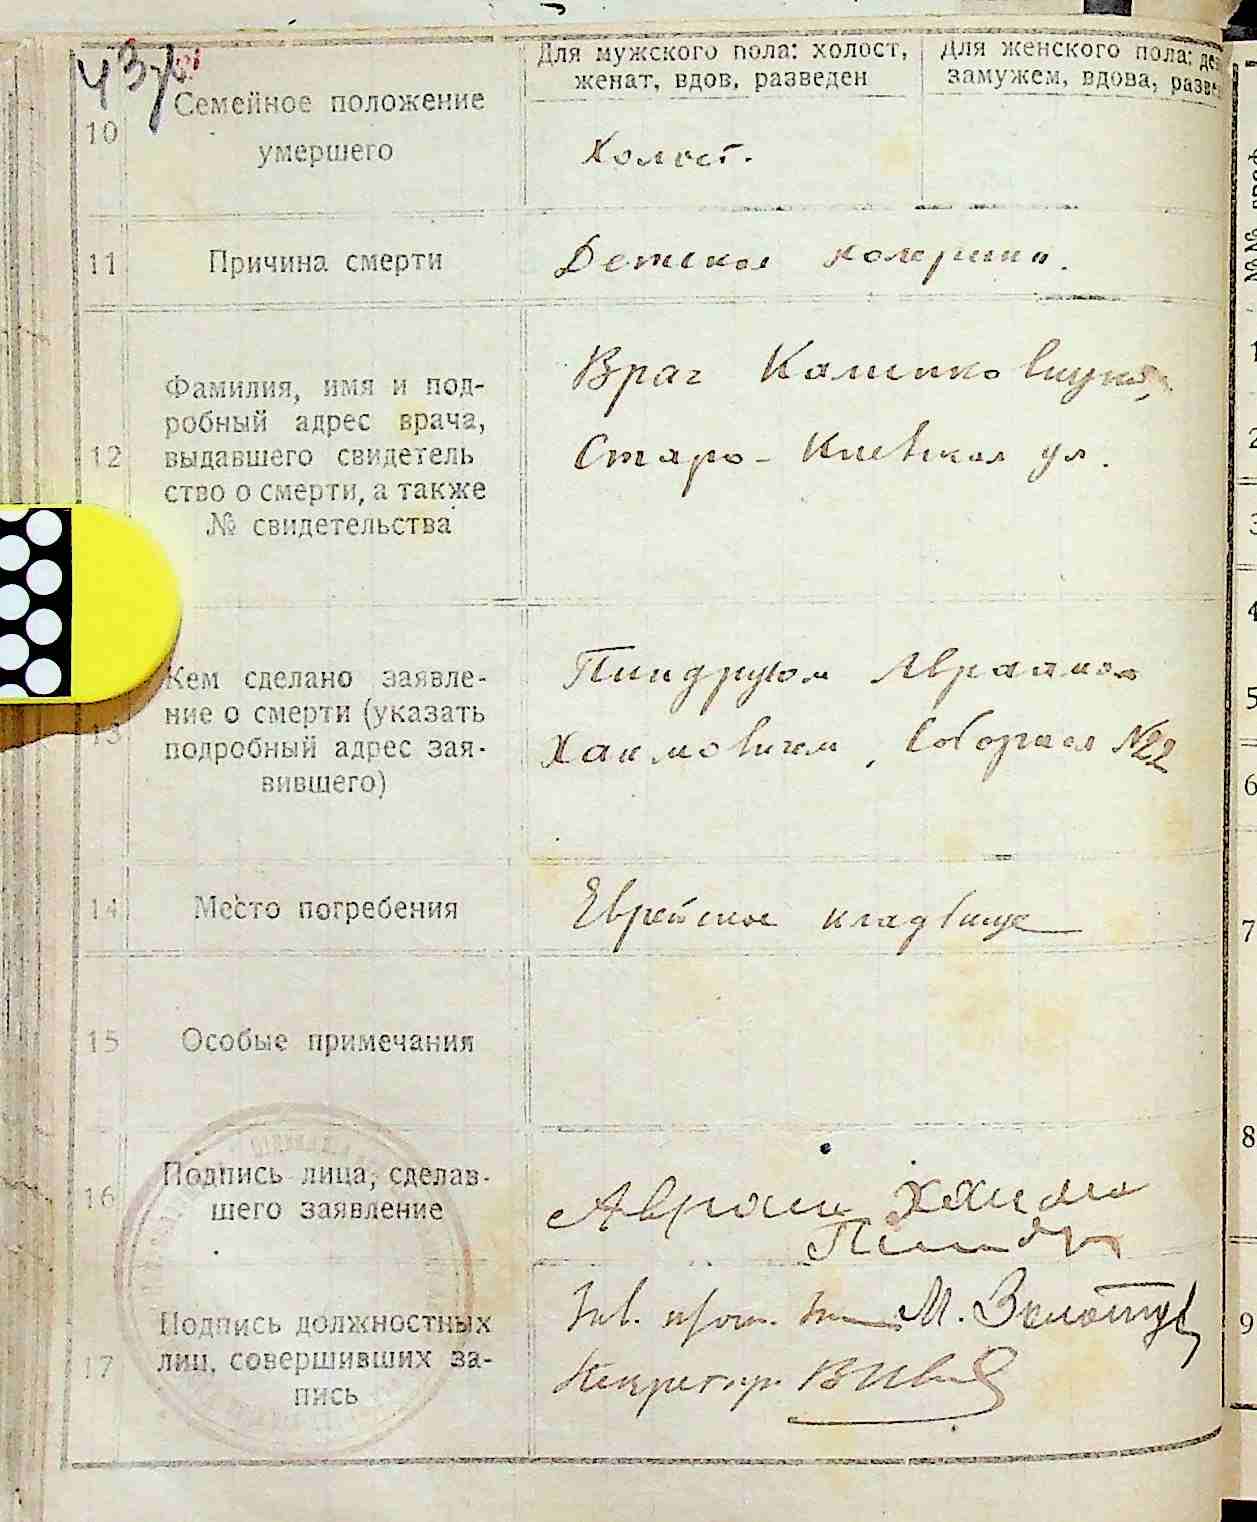 Для мужского пола: холост,
женат, вдов, разведен
Для женского пола: де
замужем, вдова, разве
10
Семейное положение
умершего
Холост.
11
Причина смерти
Детская холерина.
12
Фамилия, имя и под-
робный адрес врача,
выдавшего свидетель
ство о смерти, а также
№ свидетельства
Врач
Старо-Киевская ул.
13
Кем сделано заявле-
ние о смерти (указать
подробный адрес зая-
вившего)
Авраамом
Хаимовичем, Соборная №22
14
Место погребения
Еврейское кладбище
15
Особые примечания
16
Подпись лица, сделав-
шего заявление
Авраам Хаимо
17
Подпись должностных
лиц, совершивших за-
пись
М.
Секретарь
1
2
3
4
5
6
7
8
9